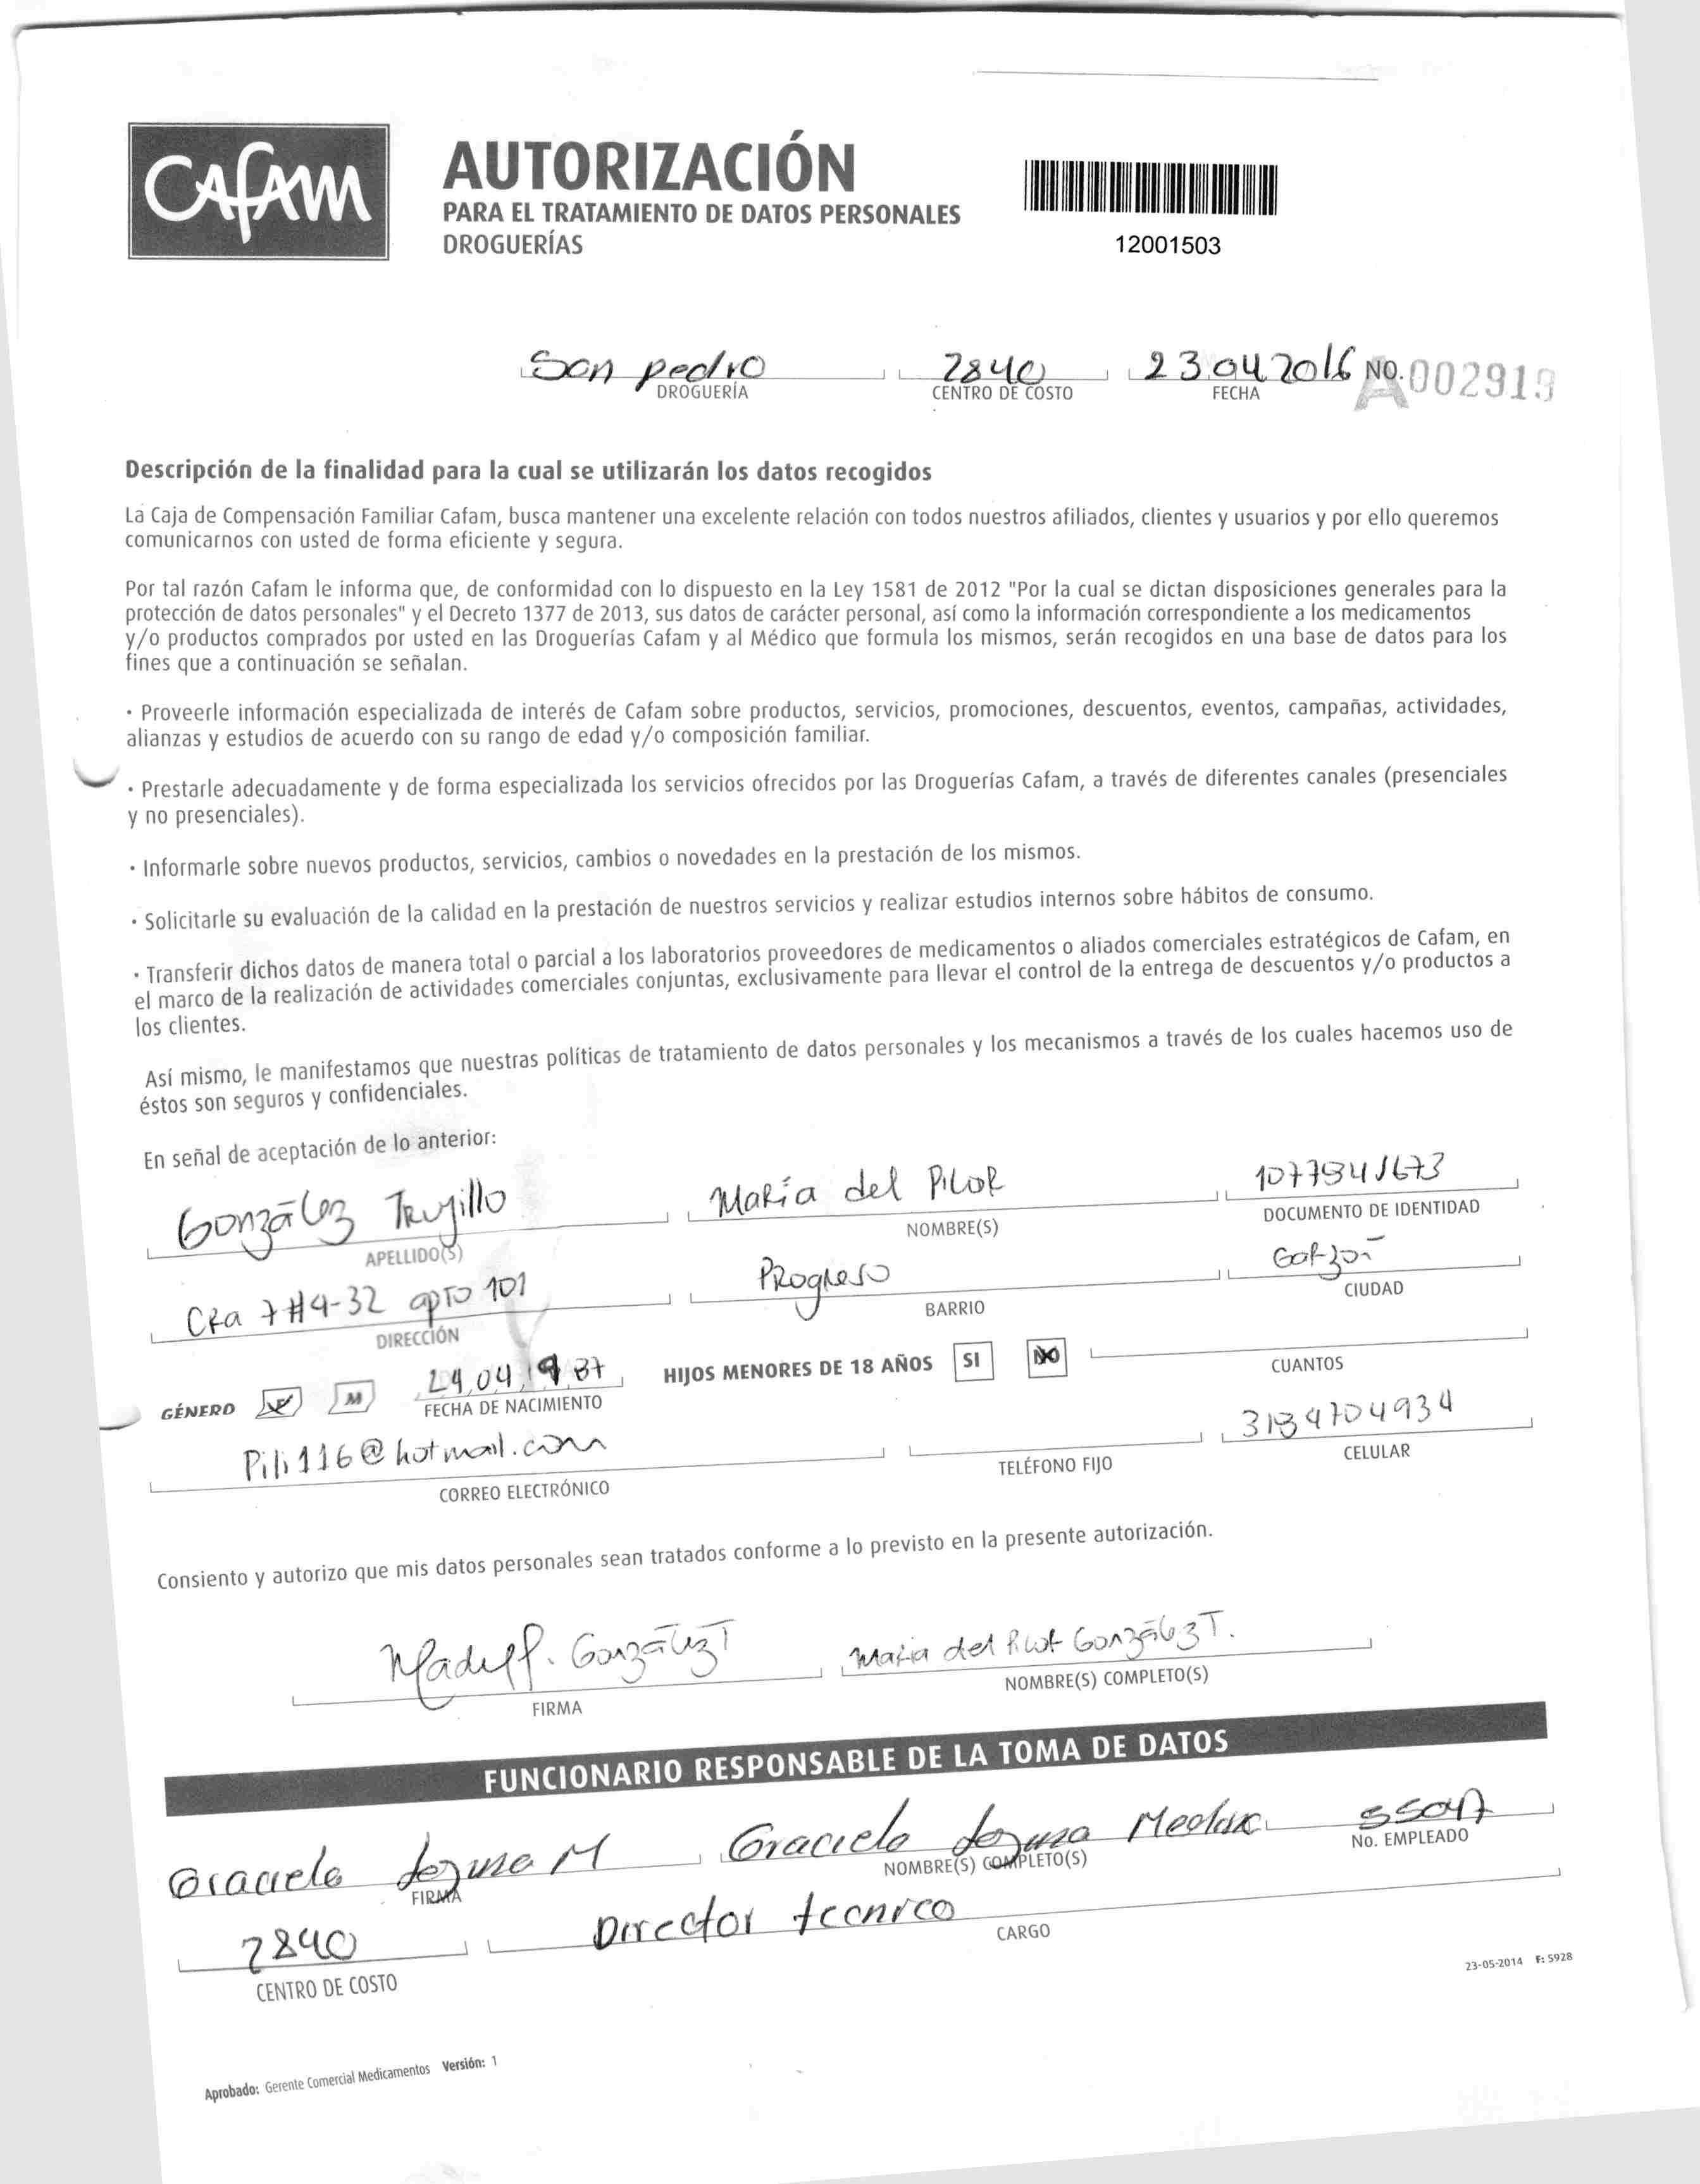 CAFAM
AUTORIZACIÓN
PARA EL TRATAMIENTO DE DATOS PERSONALES
DROGUERÍAS
12001503
San pedro 2840 23 04 2016 NO. A 002919
DROGUERÍA CENTRO DE COSTO FECHA
Descripción de la finalidad para la cual se utilizarán los datos recogidos
La Caja de Compensación Familiar Cafam, busca mantener una excelente relación con todos nuestros afiliados, clientes y usuarios y por ello queremos
comunicarnos con usted de forma eficiente y segura.
Por tal razón Cafam le informa que, de conformidad con lo dispuesto en la Ley 1581 de 2012 "Por la cual se dictan disposiciones generales para la
protección de datos personales" y el Decreto 1377 de 2013, sus datos de carácter personal, así como la información correspondiente a los medicamentos
y/o productos comprados por usted en las Droguerías Cafam y al Médico que formula los mismos, serán recogidos en una base de datos para los
fines que a continuación se señalan.
· Proveerle información especializada de interés de Cafam sobre productos, servicios, promociones, descuentos, eventos, campañas, actividades,
alianzas y estudios de acuerdo con su rango de edad y/o composición familiar.
· Prestarle adecuadamente y de forma especializada los servicios ofrecidos por las Droguerías Cafam, a través de diferentes canales (presenciales
y no presenciales).
· Informarle sobre nuevos productos, servicios, cambios o novedades en la prestación de los mismos.
· Solicitarle su evaluación de la calidad en la prestación de nuestros servicios y realizar estudios internos sobre hábitos de consumo.
· Transferir dichos datos de manera total o parcial a los laboratorios proveedores de medicamentos o aliados comerciales estratégicos de Cafam, en
el marco de la realización de actividades comerciales conjuntas, exclusivamente para llevar el control de la entrega de descuentos y/o productos a
los clientes.
Así mismo, le manifestamos que nuestras políticas de tratamiento de datos personales y los mecanismos a través de los cuales hacemos uso de
éstos son seguros y confidenciales.
En señal de aceptación de lo anterior:
González Trujillo María del Pilar
APELLIDO(S) NOMBRE(S) DOCUMENTO DE IDENTIDAD
Cra 7 #4-32 apto 101 Progreso Garzón
DIRECCIÓN BARRIO CIUDAD
GÉNERO F M 24 04 1987 HIJOS MENORES DE 18 AÑOS SI NO
FECHA DE NACIMIENTO CUANTOS
Pili116@hotmail.com 3134704934
CORREO ELECTRÓNICO TELÉFONO FIJO CELULAR
Consiento y autorizo que mis datos personales sean tratados conforme a lo previsto en la presente autorización.
González T María del Pilar González T.
FIRMA NOMBRE(S) COMPLETO(S)
FUNCIONARIO RESPONSABLE DE LA TOMA DE DATOS
Graciela M Graciela
FIRMA NOMBRE(S) COMPLETO(S) No. EMPLEADO
2840 Director tecnico
CENTRO DE COSTO CARGO
23-05-2014 F: 5928
Aprobado: Gerente Comercial Medicamentos Versión: 1